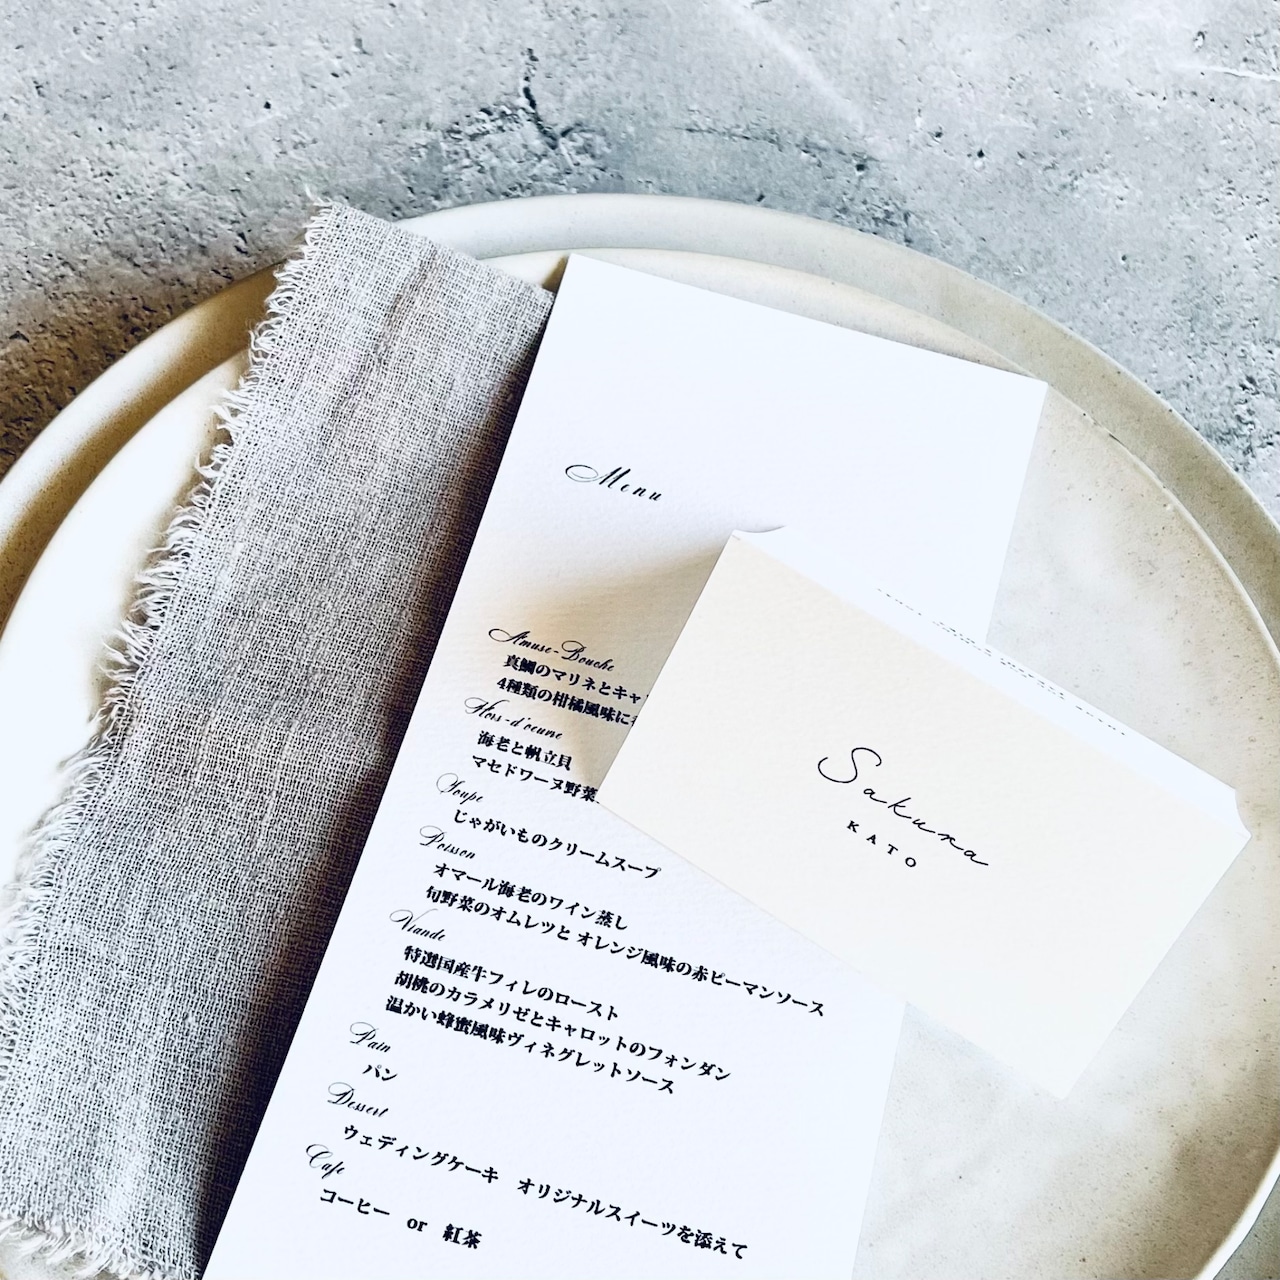 Menu
Amuse-Bouche
真鯛のマリネとキャ
4種類の柑橘風味に
Hors-d'oeune
海老と帆立貝
マセドワーヌ野菜
Soupe
じゃがいものクリームスープ
Poisson
オマール海老のワイン蒸し
旬野菜のオムレツと オレンジ風味の赤ピーマンソース
Viande
特選国産牛フィレのロースト
胡桃のカラメリゼとキャロットのフォンダン
温かい蜂蜜風味ヴィネグレットソース
Pain
パン
Dessert
ウェディングケーキ　オリジナルスイーツを添えて
Cafe
コーヒー　or　紅茶
Sakura
KATO